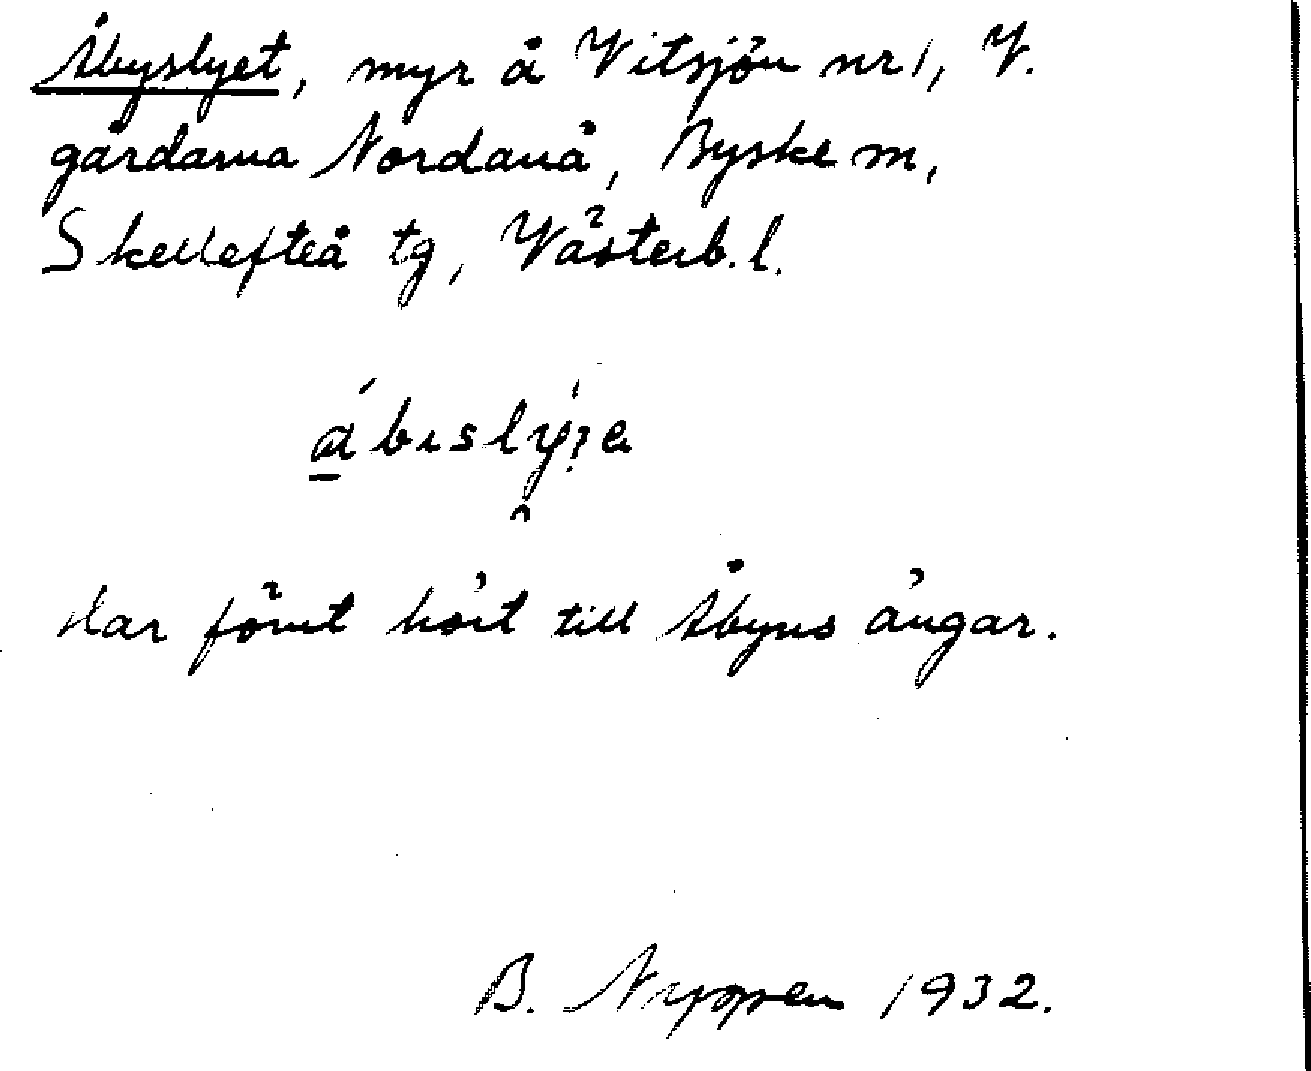 Åbyslyet, myr å Vitsjön nr 1, V.
gårdarna Nordanå, Byske sn,
Skellefteå tg, Västerb. l.
Har förut hört till Åbyns ängar.
B. Nyppen 1932.